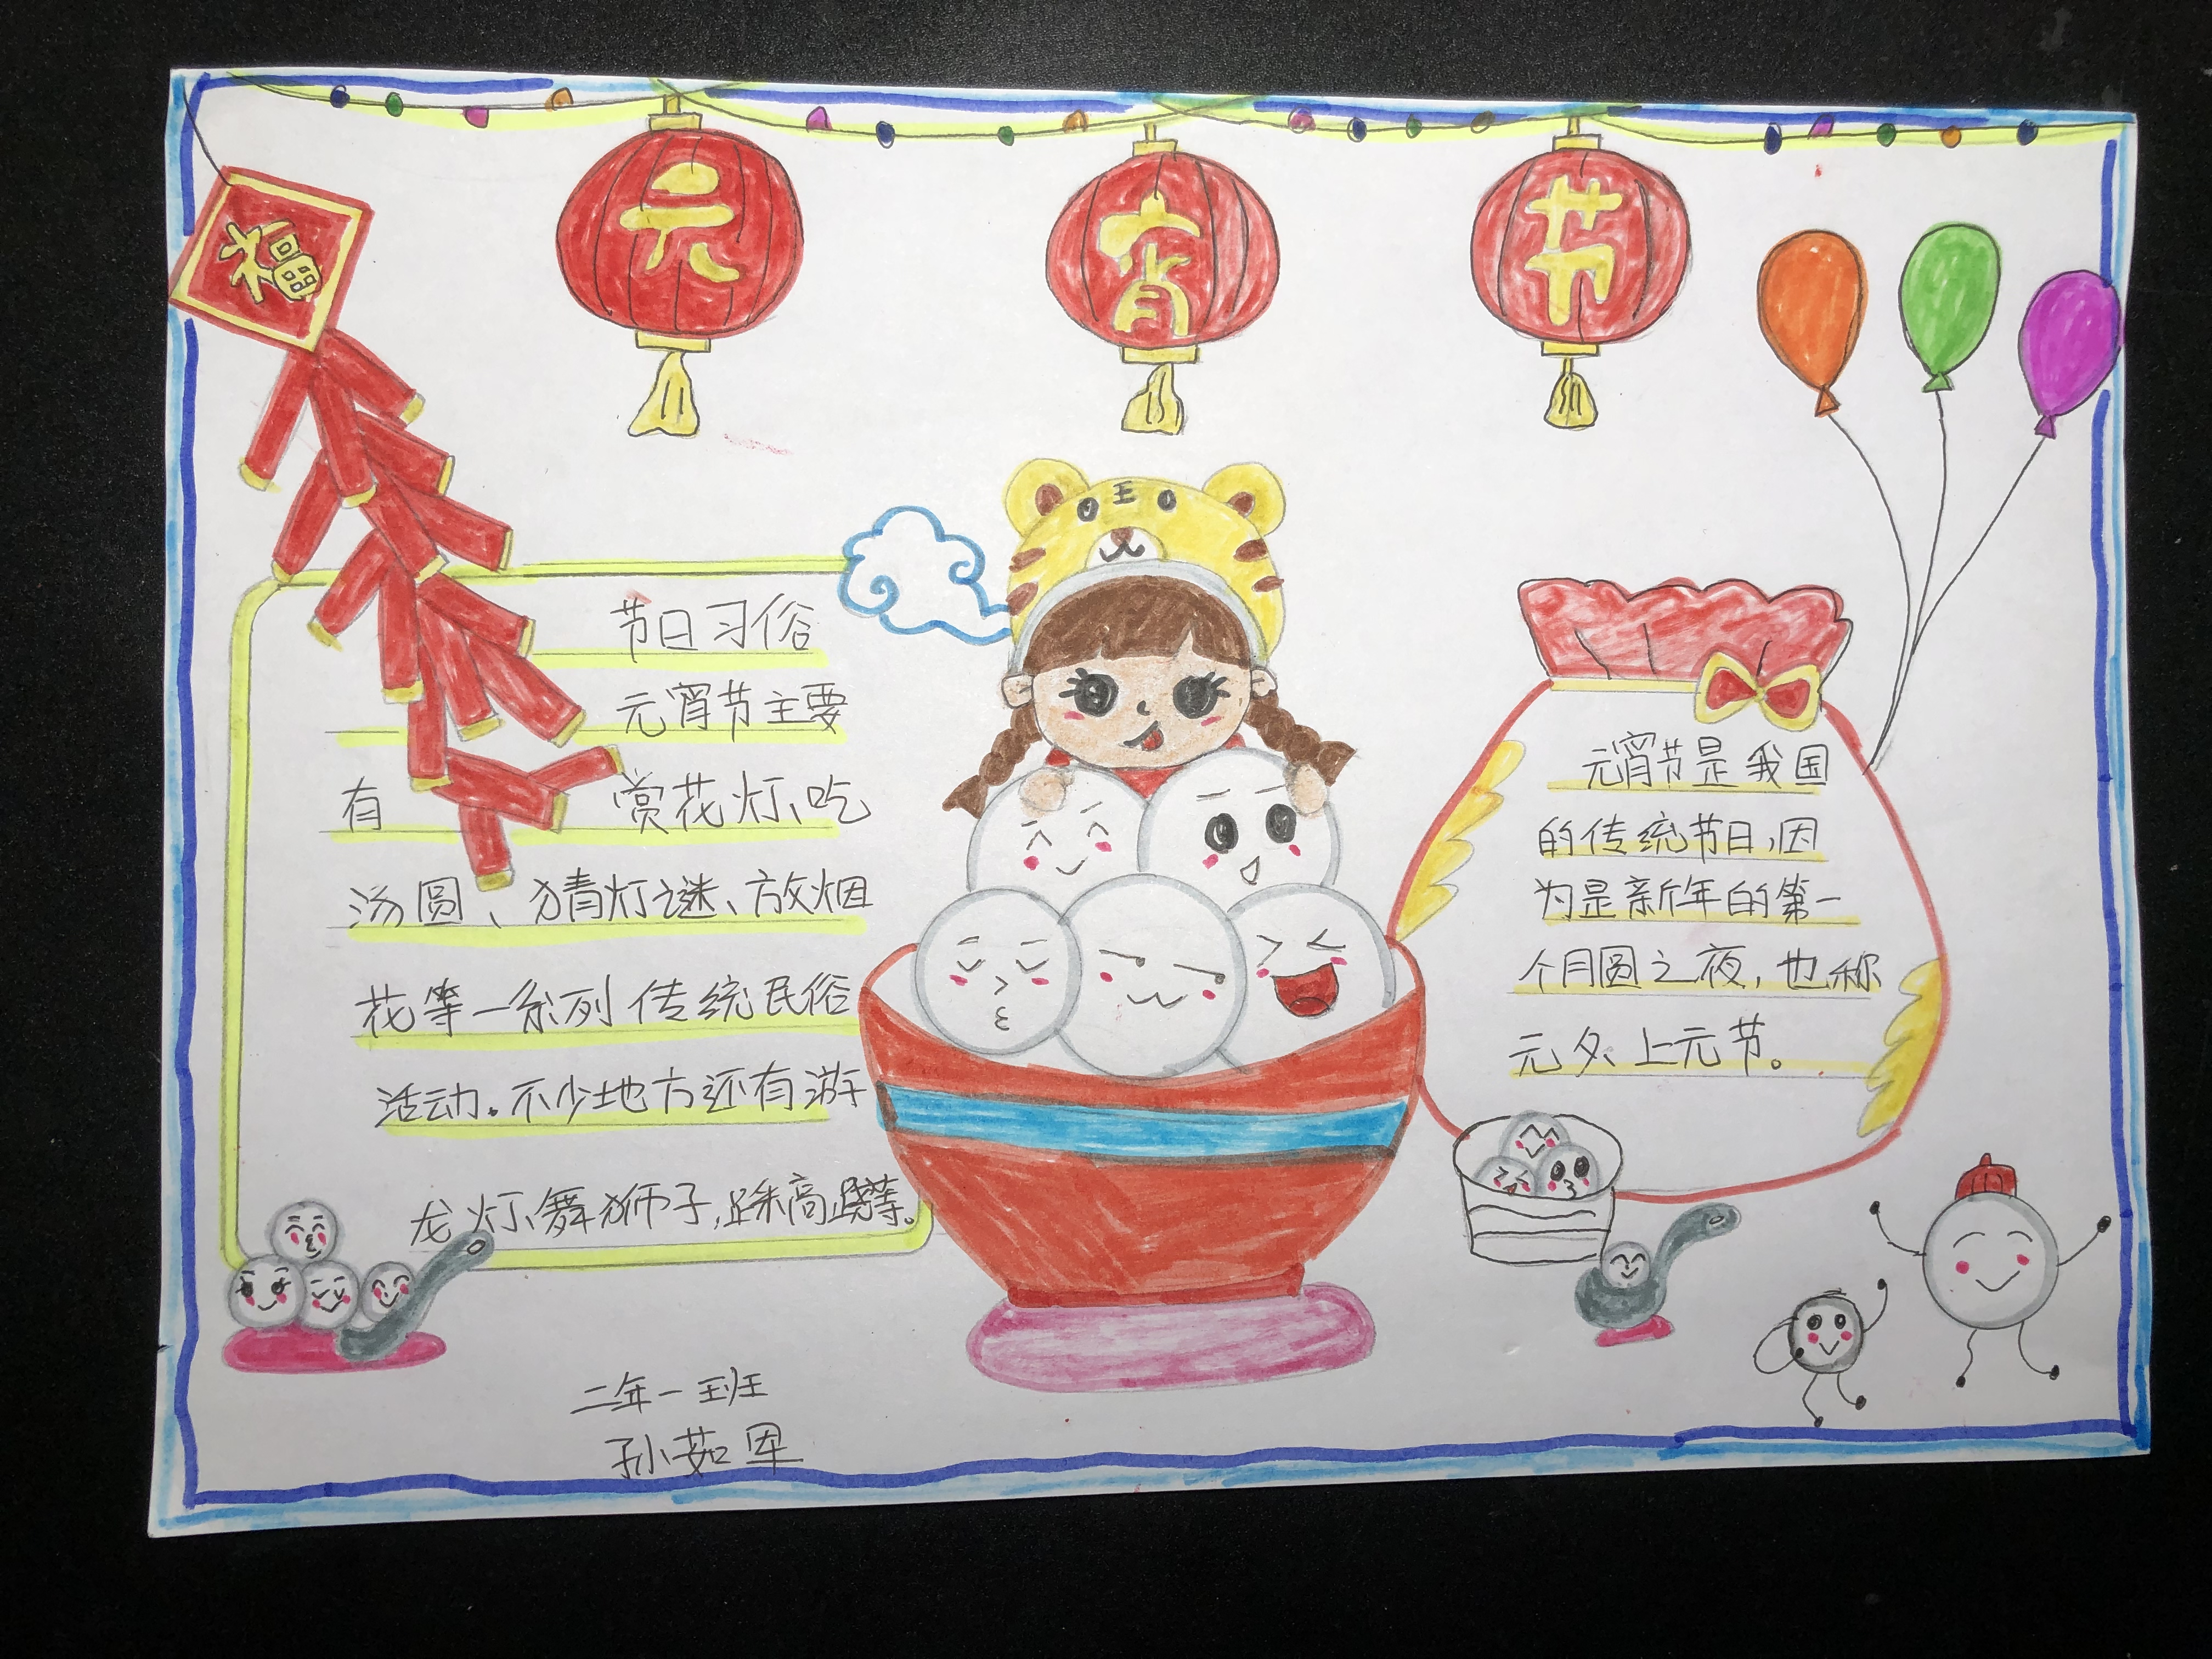 元宵节
福
王
节日习俗
元宵节主要
有 赏花灯、吃
汤圆、猜灯谜、放烟
花等一系列传统民俗
活动。不少地方还有游
龙灯、舞狮子,踩高跷等。
元宵节是我国
的传统节日,因
为是新年的第一
个月圆之夜,也称
元夕、上元节。
二年一班
孙茹